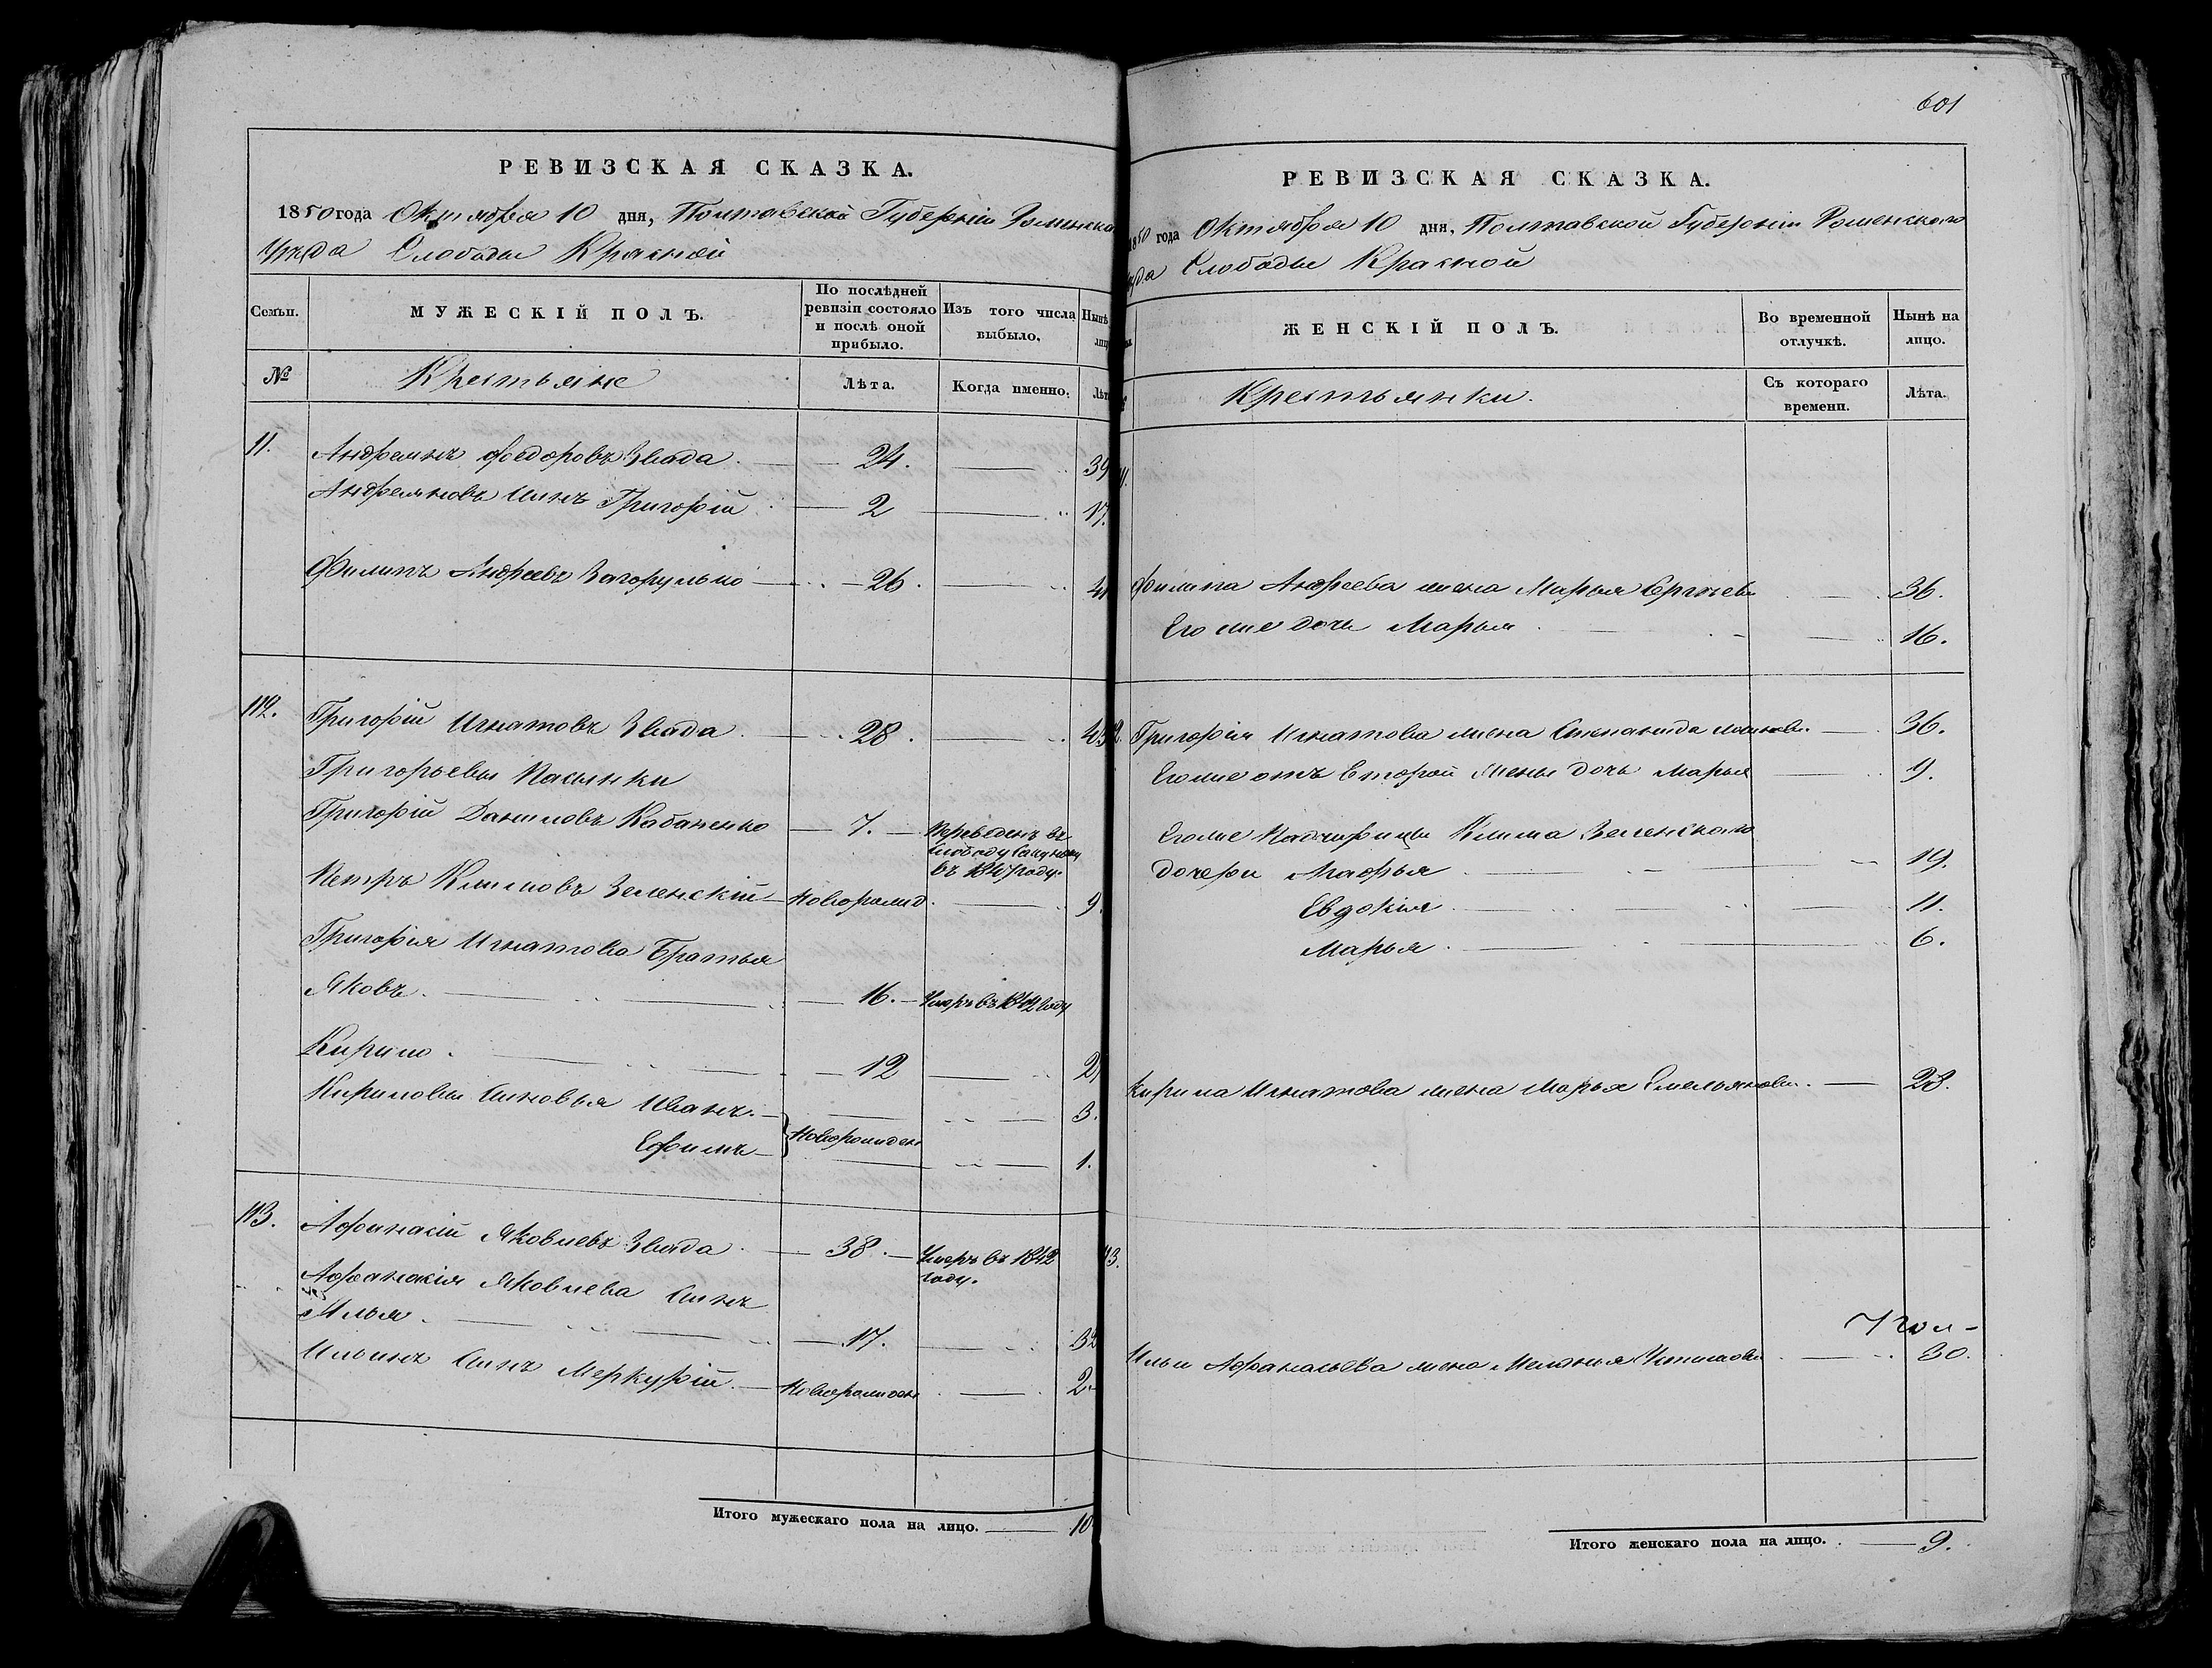 РЕВИЗСКАЯ СКАЗКА.
1850 года Октября 10 дня, Полтавской Губерніи Роменска
Уѣзда Слободы Красной
Семьи.
МУЖЕСКІЙ ПОЛЪ.
По послѣдней ревизіи состояло и послѣ оной прибыло.
Изъ того числа выбыло.
Нынѣ
№
Крестьяне
Лѣта.
Когда именно.
11. Андреянъ Федоровъ Звада 24. 39
Андреяновъ сынъ Григорій 2 17.
Филипъ Андреевъ Загорулько 26. 41
112. Григорій Игнатовъ Звада 28. 43
Григорьевы Пасынки
Григорій Даниловъ Кабаненко 7. Переведенъ въ
слободу
въ году.
Петръ Климовъ Зеленскій Поворожд 9.
Григорія Игнатова Братья
Яковъ. 16. Умеръ въ 1842 году
Кирило. 12 2
Кириловы сыновья Иванъ. 3.
Новорожден
Ефимъ 1.
113. Афанасій Яковлевъ Звада 38. Умеръ въ 1842
году.
Афанасія Яковлева сынъ
Илья. 17. 32
Ильинъ сынъ Меркурій. Новорожден 2
Итого мужескаго пола на лицо. 10
601
РЕВИЗСКАЯ СКАЗКА.
1850 года Октября 10 дня, Полтавской Губерніи Роменскаго
зда Слободы Красной
ЖЕНСКІЙ ПОЛЪ.
Во временной отлучкѣ.
Нынѣ на лицо.
Крестьянки.
Съ котораго времени.
Лѣта.
Филипа Андреева жена Марья 36.
Его же дочь Марья 16.
Григорія Игнатова жена Степанида 36.
Егоже отъ второй жены дочь Марья 9.
Егоже Падчерицы Клима Зеленскаго
дочери Марья 19.
Евдокія 11.
Марья 6.
Кирила Игнатова жена Марья Емельянова. 23.
113.
Ильи Афанасьева жена 30.
Итого женскаго пола на лицо. 9.